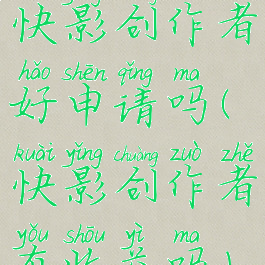 快影创作者
hǎo shēn qǐng ma
好申请吗(
kuài yǐng chuàng zuò zhě
快影创作者
yǒu shōu yì ma
有收益吗)